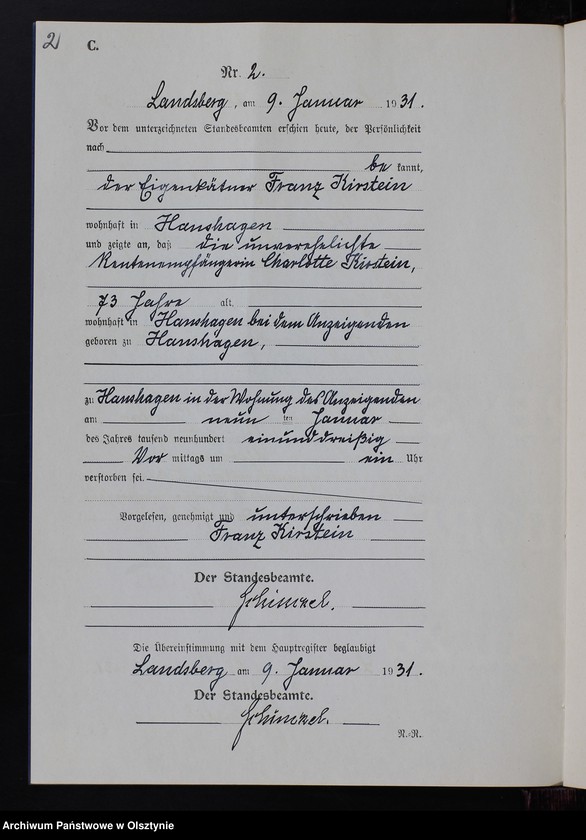 2
C.
Nr. 2.
Landsberg, am 9. Januar 1931.
Vor dem unterzeichneten Standesbeamten erschien heute, der Persönlichkeit
nach
be kannt,
der Eigenkätner Franz Kirstein
wohnhaft in Hanshagen
und zeigte an, daß die unverehelichte
Rentenempfängerin Charlotte Kirstein,
73 Jahre alt,
wohnhaft in Hanshagen bei dem Anzeigenden
geboren zu Hanshagen,
zu Hanshagen in der Wohnung des Anzeigenden
am neun ten Januar
des Jahres tausend neunhundert einunddreißig
Vor mittags um ein Uhr
verstorben sei.
Vorgelesen, genehmigt und unterschrieben
Franz Kirstein
Der Standesbeamte.
Schimkel.
Die Übereinstimmung mit dem Hauptregister beglaubigt
Landsberg am 9. Januar 1931.
Der Standesbeamte.
Schimkel.
N.=R.
Archiwum Państwowe w Olsztynie